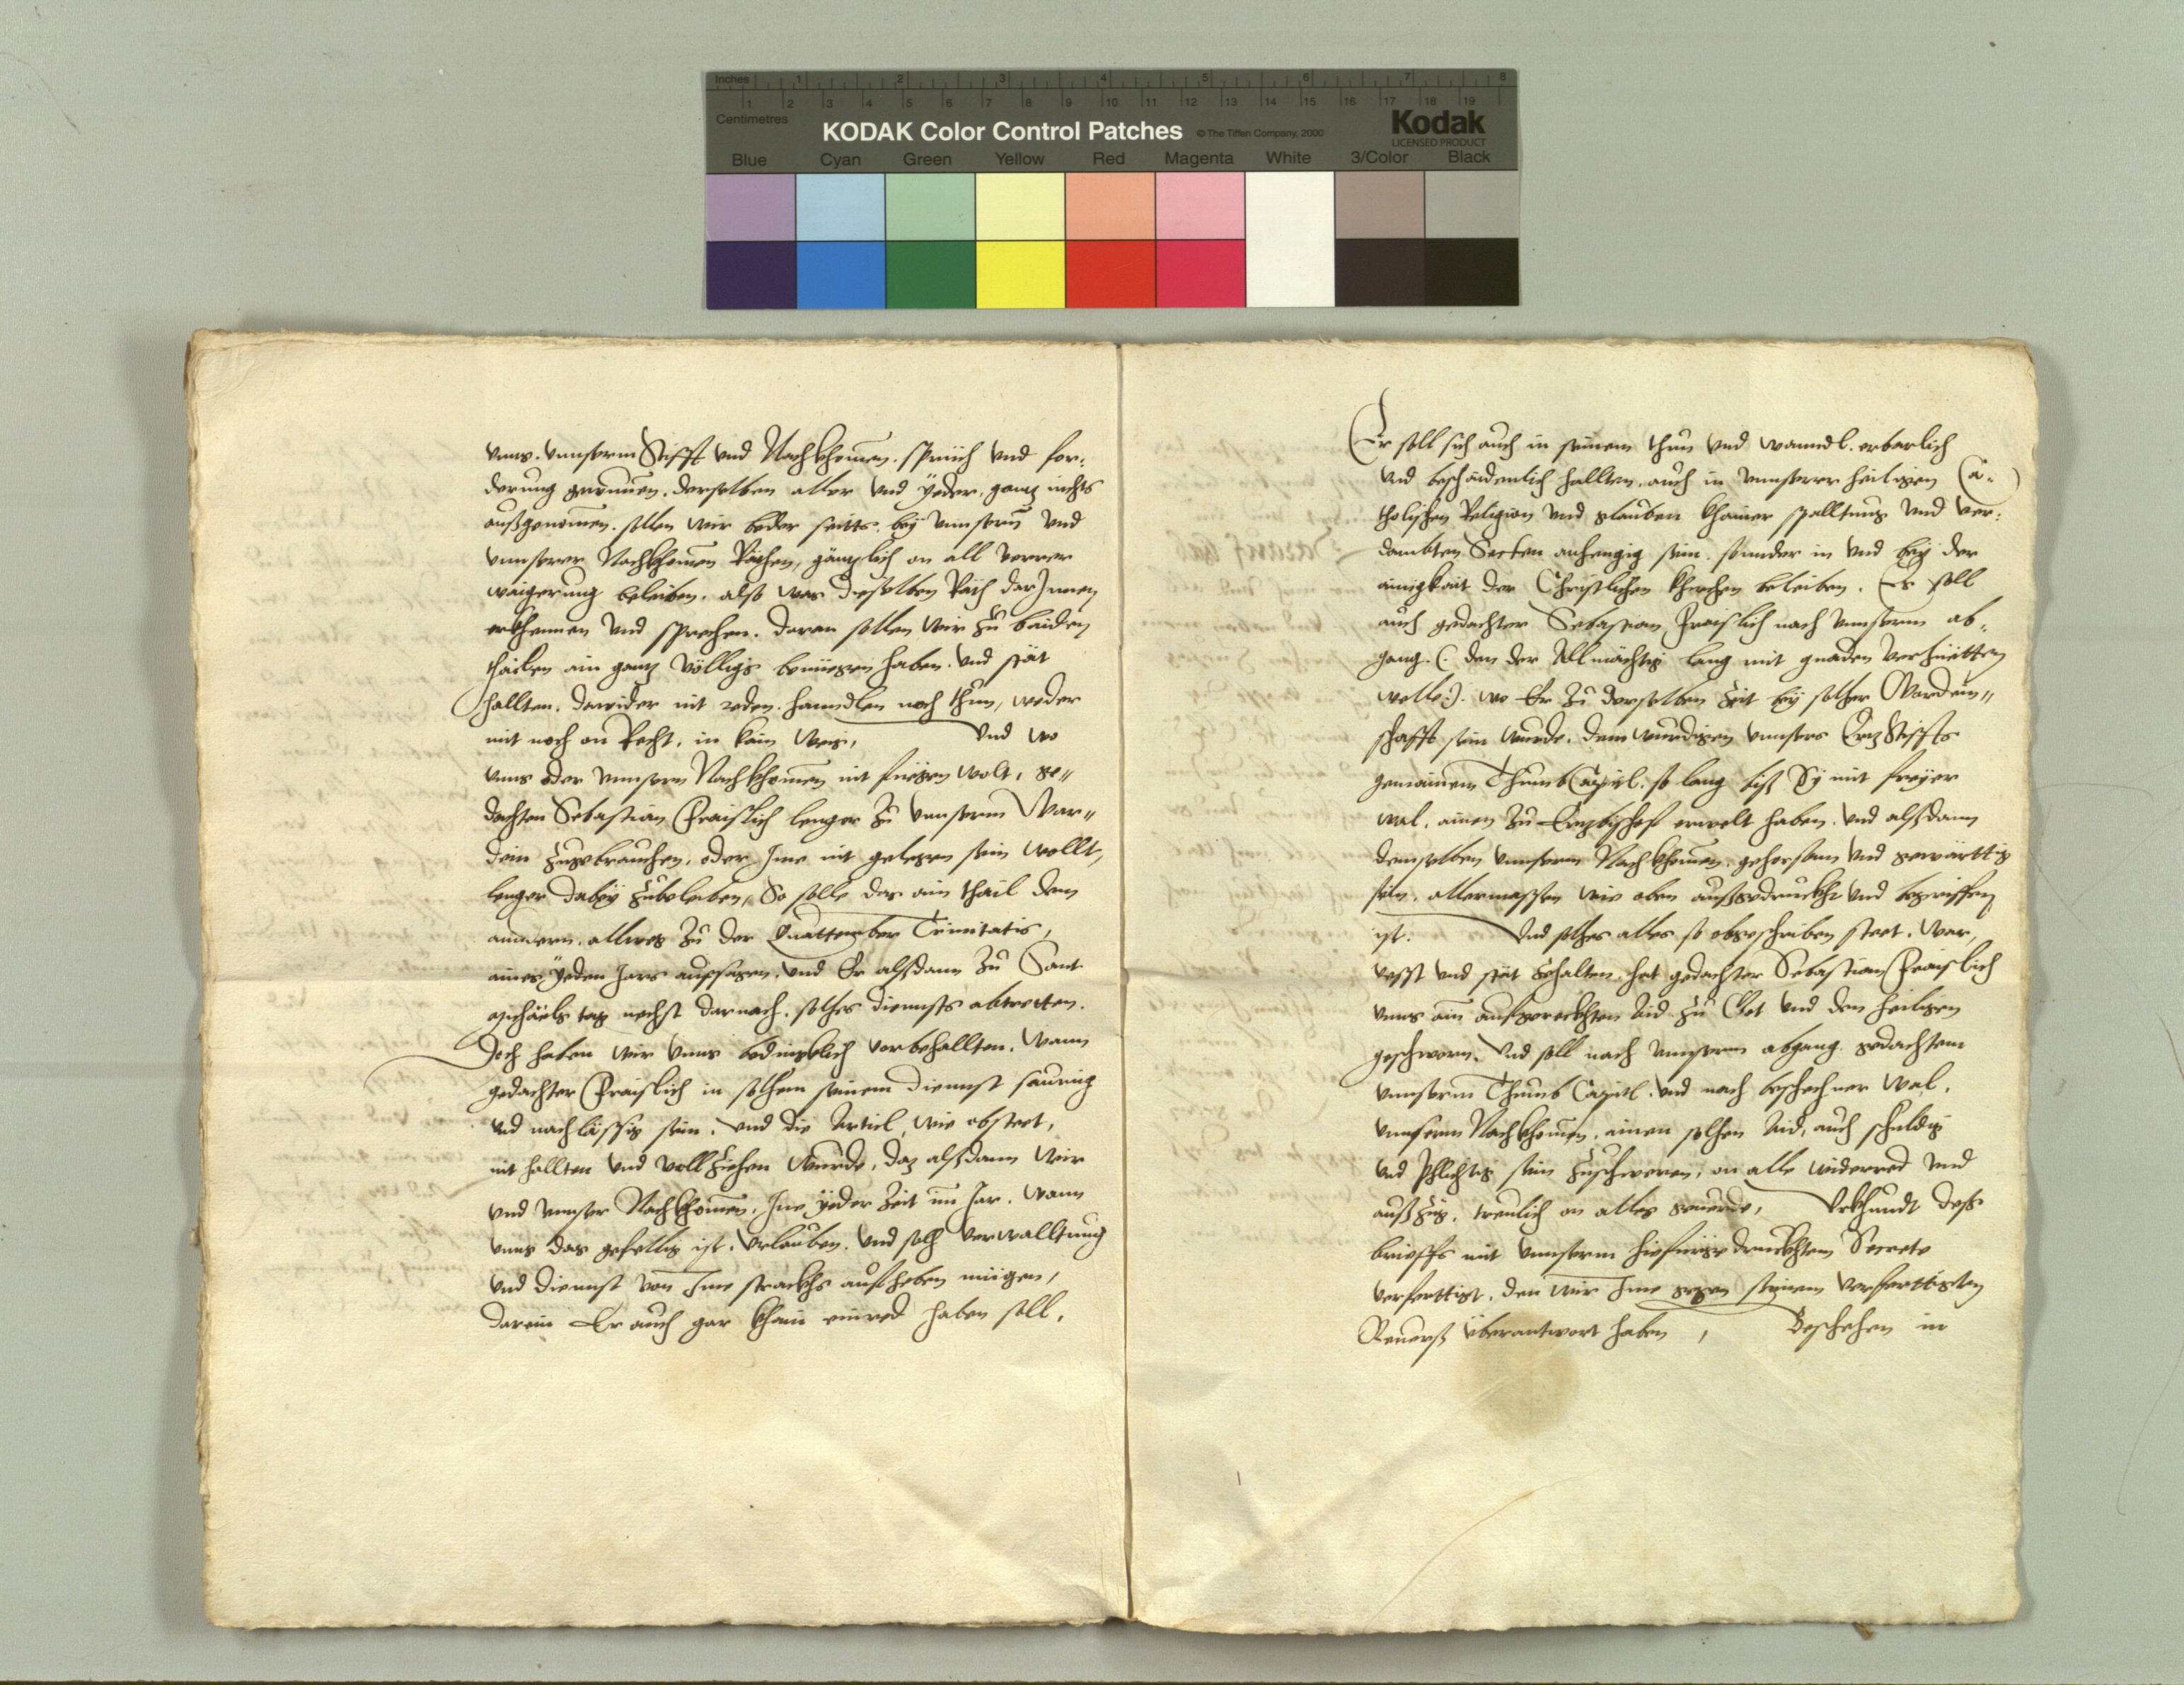 Inches 1 2 3 4 5 6 7 8
1 2 3 4 5 6 7 8 9 10 11 12 13 14 15 16 17 18 19
Centimetres
KODAK Color Control Patches © The Tiffen Company, 2000 Kodak
LICENSED PRODUCT
Blue Cyan Green Yellow Red Magenta White 3/Color Black
vnns. vnnserm Stifft vnd Nachkhomen. sprüch vnd for-
derung gewunnen. derselben aller vnd yeder, ganz nichts
außgenomen. sollen wir beder seitts. bey vnnsern vnd
vnnserer Nachkhomen Räthen, gänzlich on all verrer
waigerung beleiben. also was dieselben Räth darJnnen
erkhennen vnd sprechen. daran sollen wir zu baiden
thailen ain ganz völligs benüegen haben. vnd stät
hallten. darwider nit reden. hanndlen noch thun, weder
mit noch on Recht, in kain weg, Vnd wo
vnns oder vnnsern Nachkhomen nit füegen wolt, ge-
dachten Sebastian Praislich lenger zu vnnserm War-
dein zugebrauchen, oder Jme nit gelegen sein wollt,
lenger dabey zubeleiben, So solle das ain thail dem
anndern. allweg zu der Quattember Trinitatis,
aines yeden Jars aufsagen. vnd Er alßdann zu Sant
Michaels tag nechst darnach. solhes diennsts abtretten.
Doch haben wir vnns bedingklich vorbehallten. wann
gedachter Praislich in solhem seinem diennst saumig
vnd nachlässig sein. vnd die Articl, wie obsteet,
nit hallten vnd vollziehen wurde, daz alßdann wir
vnd vnnser Nachkhomen, Jne yeder zeit im Jar. wann
vnns das gefellig ist. vrlauben. vnd solh verwalltung
vnd diennst von Jme strackhs aufheben mügen,
darein Er auch gar khain einred haben soll.
Er soll sich auch in seinem thun vnd wanndl. erbarlich
vnd beschaidenlich hallten. auch in vnnserer heiligen Ca-
tholischen Religion vnd glauben khainer spalltung vnd ver-
dambten Secten anhengig sein. sonnder in vnd bey der
ainigkait der Christlichen khirchen beleiben. Es soll
auch gedachter Sebastian Praislich nach vnnserm ab-
gang. (: den der Allmächtig lang mit gnaden verhüetten
welle:). wo Er zu derselben zeit bey solher Wardein-
schafft sein wurde. dem wurdigen vnnsers Erzstiffts
gemainem ThumbCapitl. so lang biß Sy mit freyer
wal. ainen zu Erzbischof erwelt haben. vnd alßdann
demselben vnnserm Nachkhomen. gehorsam vnd gewärttig
sein. allermassen wie oben außgedruckht vnd begriffen
ist. Vnd solhes alles so obgeschriben steet. war,
vesst vnd stät zehalten. hat gedachter Sebastian Praislich
vnns ain aufgereckhten Aid zu Got vnd den heiligen
geschworn. Vnd soll nach vnnserm abgang. gedachtem
vnnserm Thumb Capitl. vnd nach beschechner wal.
vnnserm Nachkhomen, ainen solhen Aid, auch schuldig
vnd phlichtig sein zuschweren, on alle widerred vnd
außzüg. treulich on alles geuerde, Vrkhundt deß
brieffs mit vnnserm hiefürgedruckhtem Secrete
verferttigt. den wir Jme gegen seinem verferttigten
Reuerß überantwort haben, Beschehen in